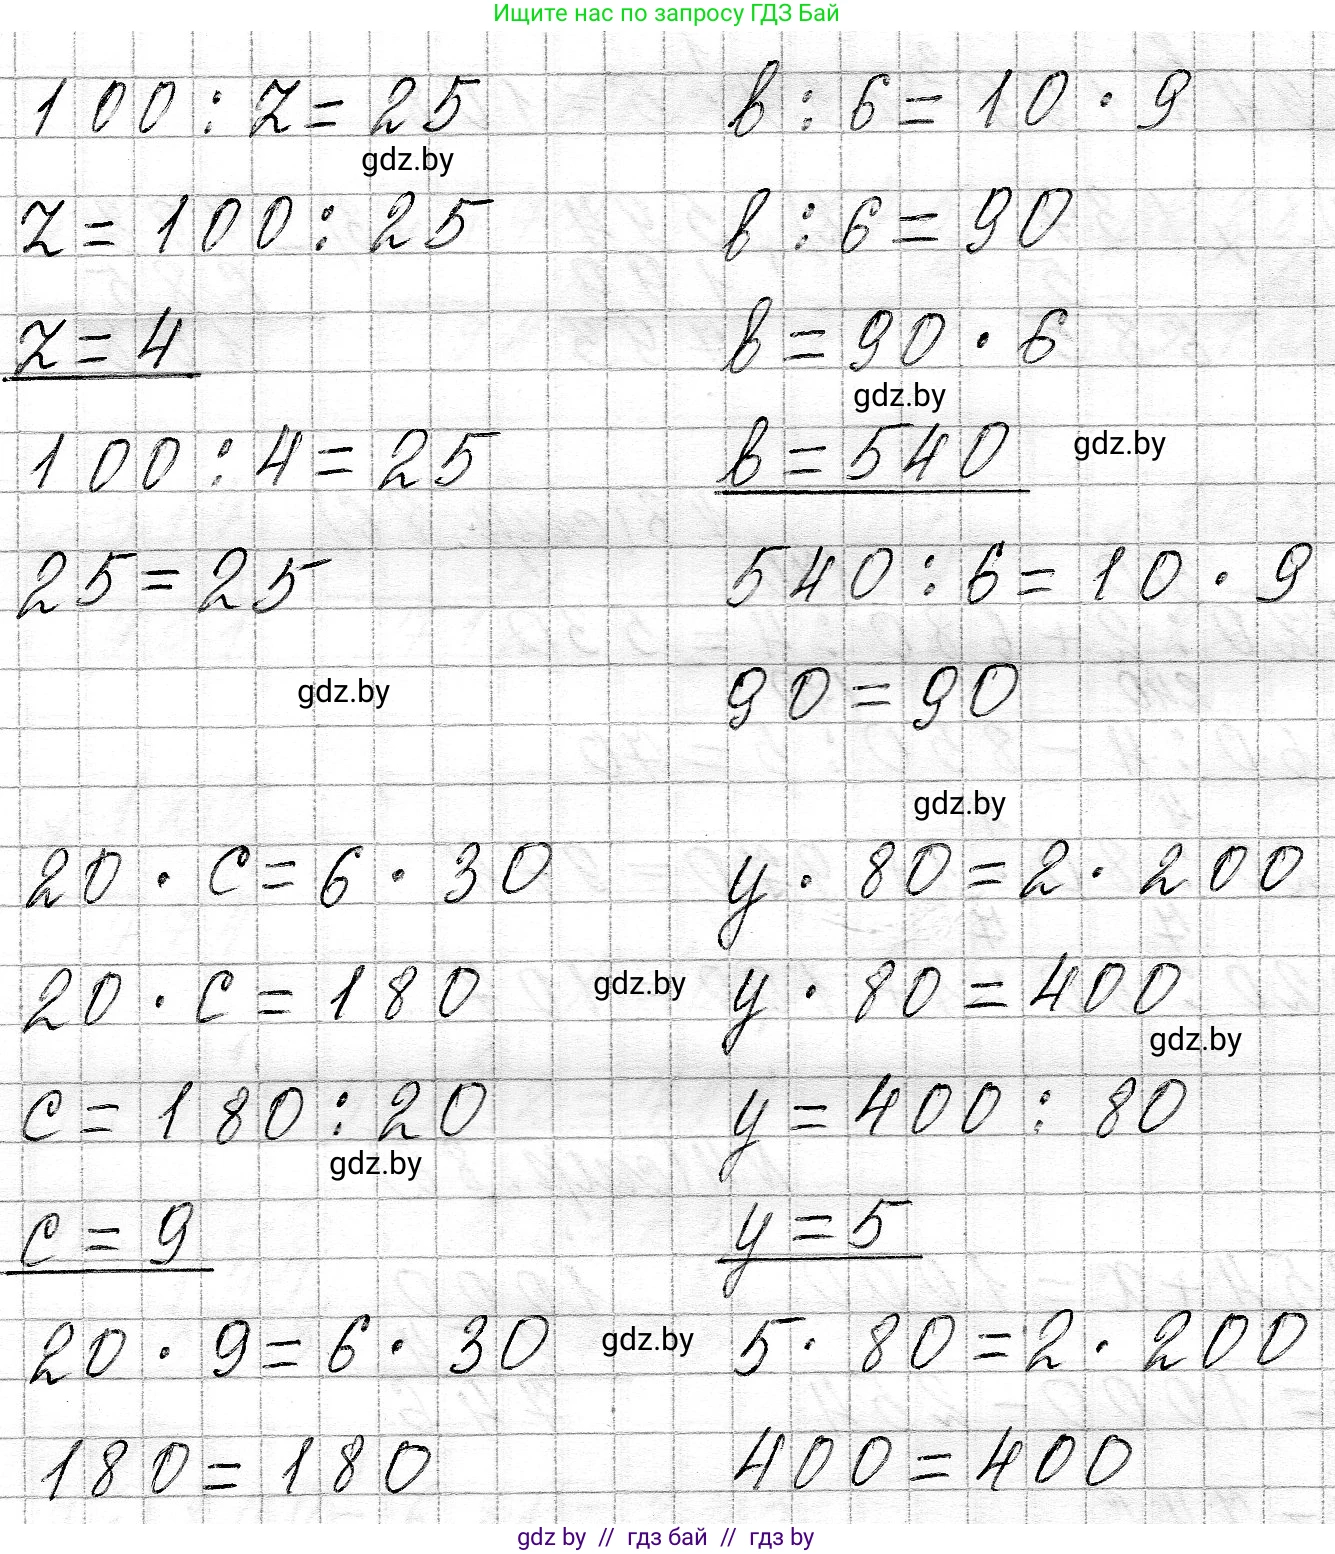 Ищите нас по запросу ГДЗ Бай
100 : z = 25
gdz.by
z = 100 : 25
z = 4
100 : 4 = 25
25 = 25
gdz.by
в : 6 = 10 · 9
в : 6 = 90
в = 90 · 6
gdz.by
в = 540 gdz.by
540 : 6 = 10 · 9
90 = 90
gdz.by
20 · с = 6 · 30
20 · с = 180 gdz.by
с = 180 : 20
gdz.by
с = 9
20 · 9 = 6 · 30 gdz.by
180 = 180
у · 80 = 2 · 200
у · 80 = 400
gdz.by
у = 400 : 80
у = 5
5 · 80 = 2 · 200
400 = 400
gdz by // гдз бай // гдз by